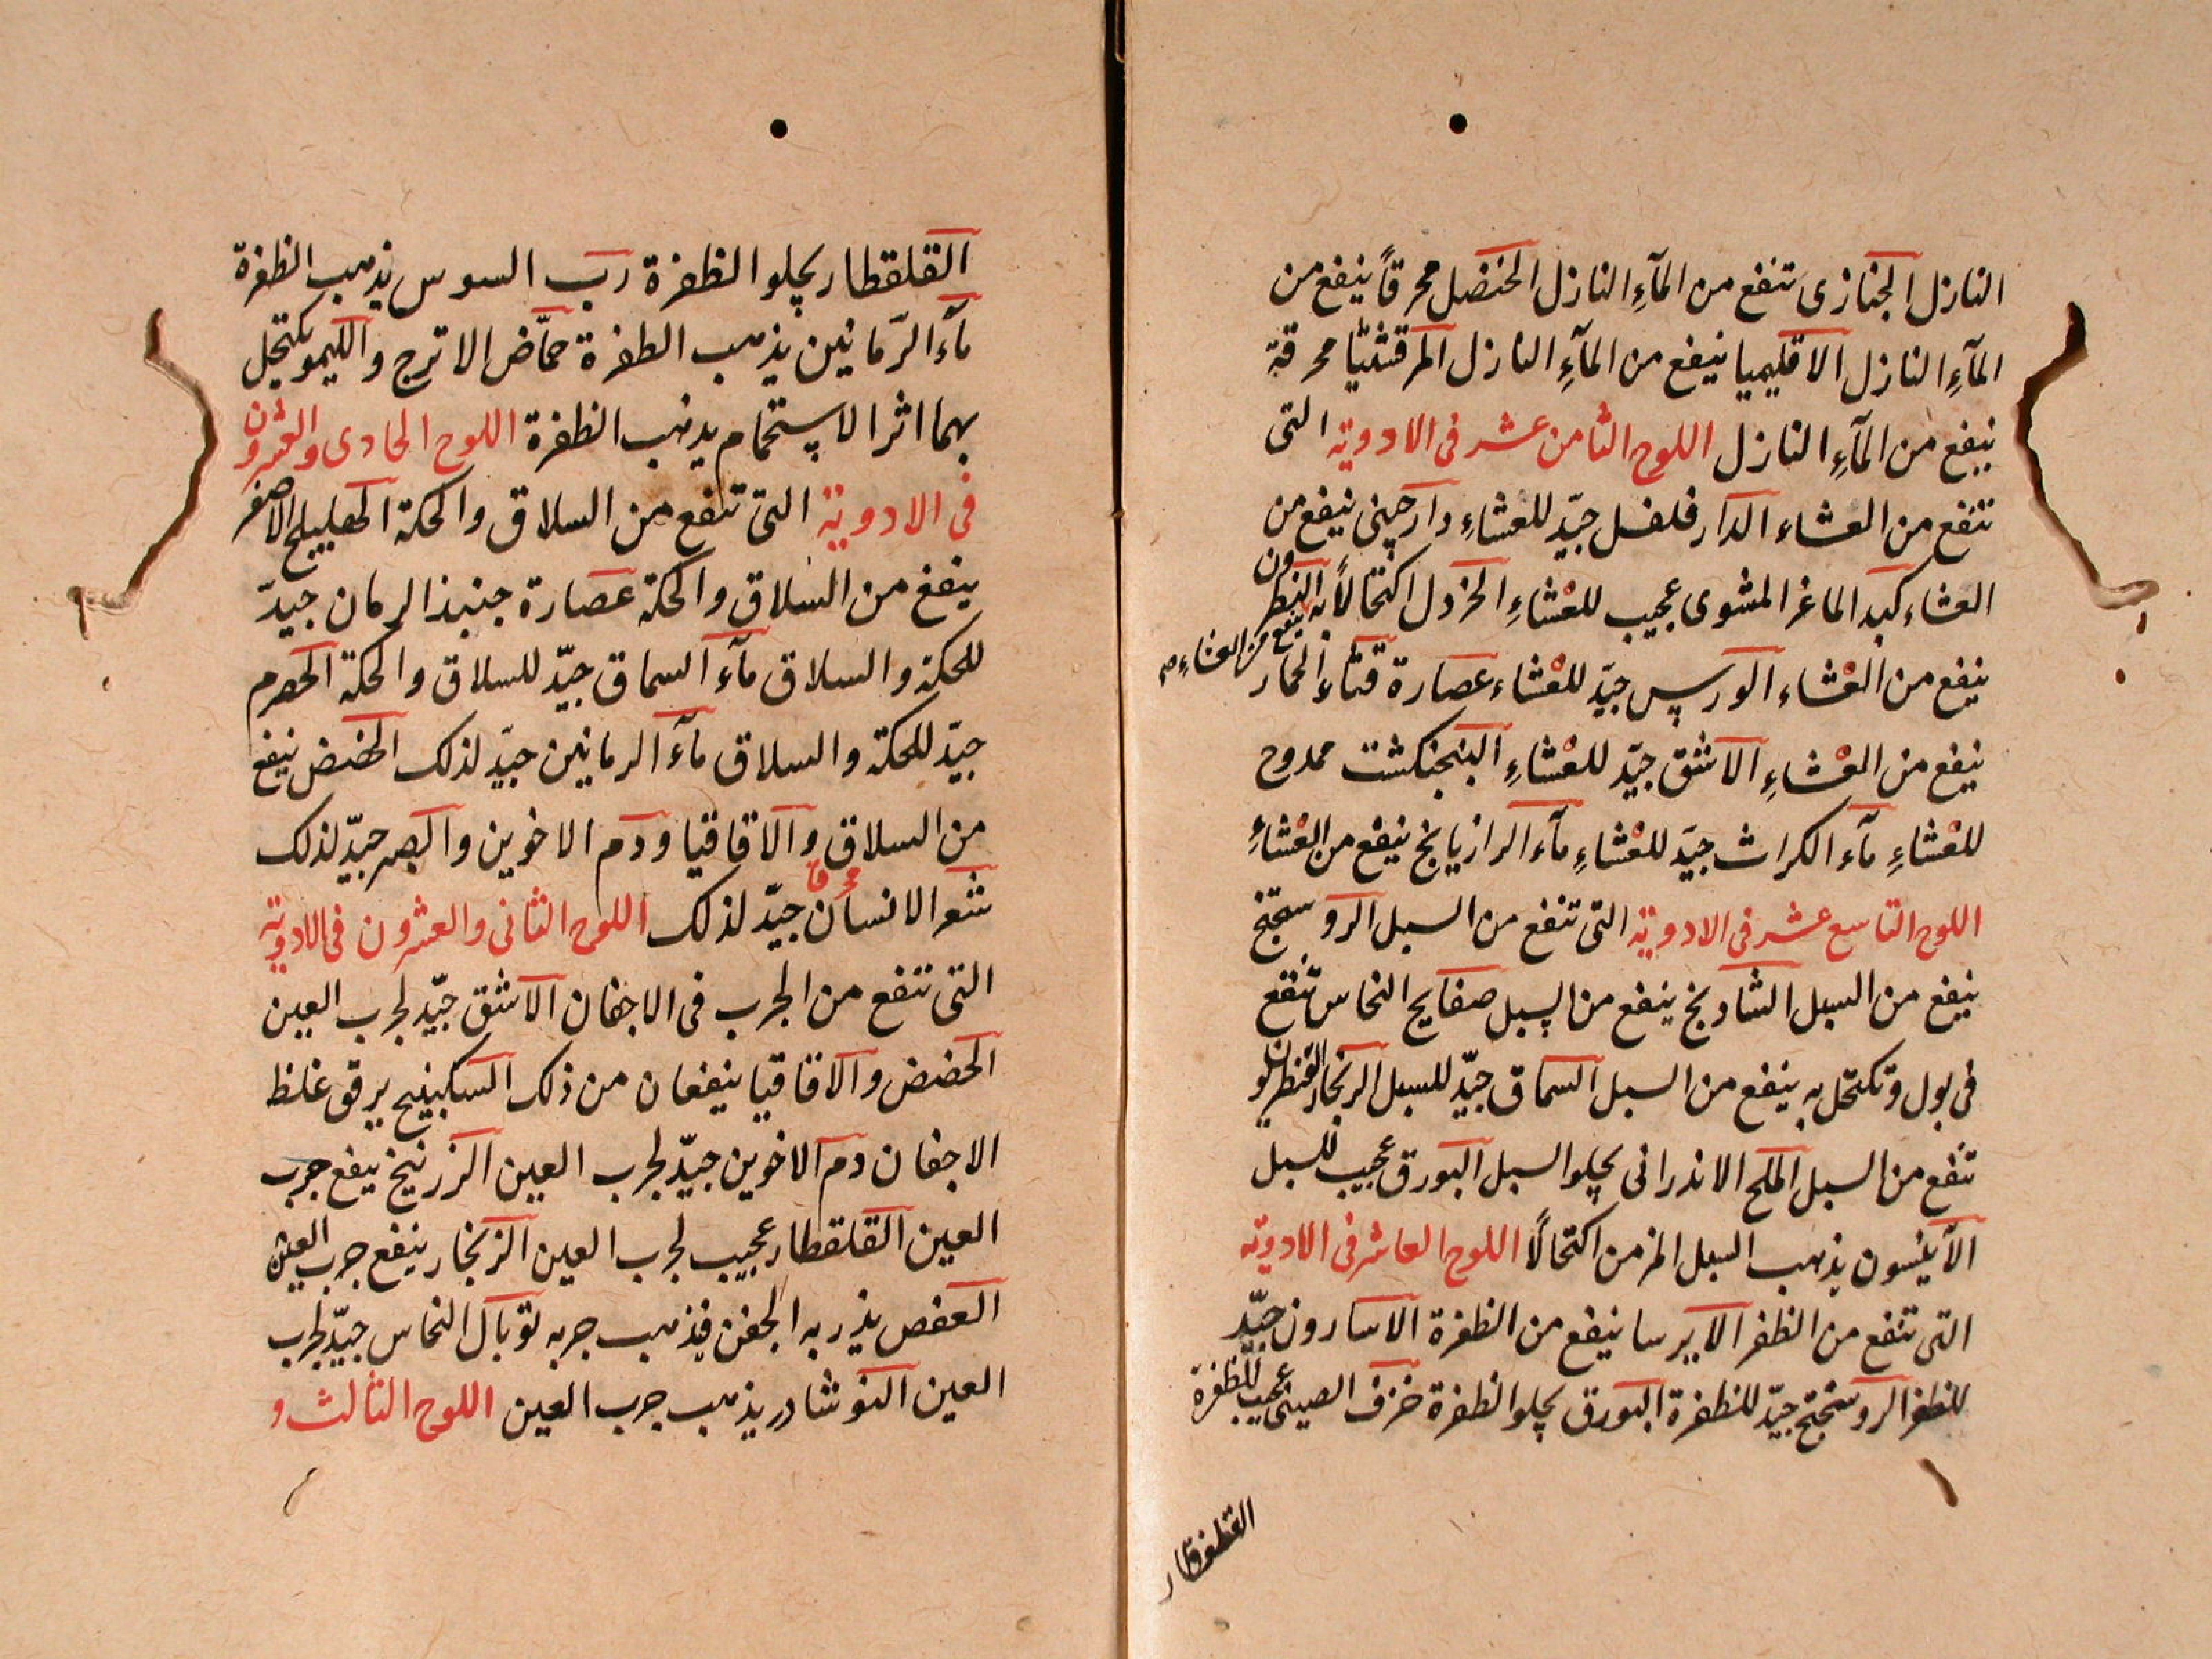 النازل الجنازى تنفع من المآءِ النازل الحنضل محرقاً ينفع من
المآءِ النازل الاقليميا ينفع من المآءِ النازل المرقشيثا محرقة
ينفع من المآءِ النازل اللوح الثامن عشر فى الادوية التى
تنفع من العشاء الدار فلفل جيّد للعشاءِ دارچينى ينفع من
العشاء كبد الماعز المشوى عجيب للعشاءِ الخردل اكتحالاً به النطرون
ينفع من العشاءِ صح
ينفع من العشاء الورس جيّد للعشاء عصارة قثاء الحمار
ينفع من العشاءِ الاشق جيّد للعشاءِ البنجنكشت ممدوح
للعشاءِ مآء الكراث جيّد للعشاءِ مآء الرازيانج ينفع من العشاءِ
اللوح التاسع عشر فى الادوية التى تنفع من السبل الروستختج
ينفع من السبل الشادنج ينفع من السبل صفايح النحاس تنقع
فى بول وتكتحل به ينفع من السبل السماق جيّد للسبل الزنجار
تنفع من السبل الملح الاندرانى يجلو السبل البورق عجيب للسبل
الآنيسون يذهب السبل المزمن اكتحالاً اللوح العاشر فى الادوية
التى تنفع من الظفر الايرسا ينفع من الظفرة الاسارون جيّد
للظفر الروستختج جيّد للظفرة البورق يجلو الظفرة خزف الصينى عجيب للظفرة
القلقطار
القلقطار يجلو الظفرة رب السوس يذهب الظفرة
مآء الرّمانين يذهب الظفرة حمّاض الاترج والليمو يكتحل
بهما اثر الاستحمام يذهب الظفرة اللوح الحادى والعشرون
فى الادوية التى تنفع من السلاق والحكة الهليلج الاصفر
ينفع من السلاق والحكة عصارة جنبذ الرمان جيّد
للحكة والسلاق مآء السماق جيّد للسلاق والحكة الحصرم
جيّد للحكة والسلاق مآء الرمانين جيّد لذلك الحضض ينفع
من السلاق والاقاقيا ودم الاخوين والصبر جيّد لذلك
شعر الانسان محرق جيّد لذلك اللوح الثانى والعشرون فى الادوية
التى تنفع من الجرب فى الاجفان الاشق جيّد لجرب العين
الحضض والاقاقيا ينفعان من ذلك السكبينج يرقق غلظ
الاجفان دم الاخوين جيّد لجرب العين الزرنيخ ينفع جرب
العين القلقطار عجيب لجرب العين الزنجار ينفع جرب العين
العفص يذر به الجفن فيذهب جربه توبال النحاس جيّد لجرب
العين النوشادر يذهب جرب العين اللوح الثالث و